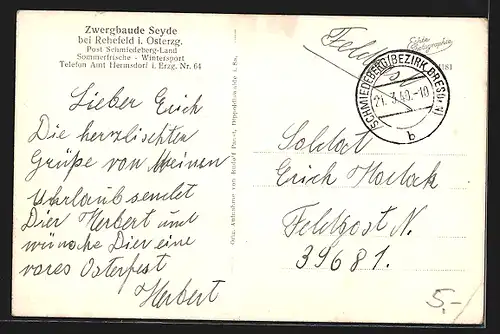 Zwergbaude Seyde
bei Rehefeld i. Osterzg.
Post Schmiedeberg-Land
Sommerfrische - Wintersport
Telefon Amt Hermsdorf i. Erzg. Nr. 64
Lieber Erich
Die herzlischten
Grüße von Meinen
Uhrlaub sendet
Dier Herbert und
wünsche Dier eine
vores Osterfest
Herbert
Feldp
Echte
Photographie
SCHMIEDEBERG (BEZIRK DRESDEN)
21.3.40.-10
b
Soldat
Erich
Feldpost N.
39681.
5,-